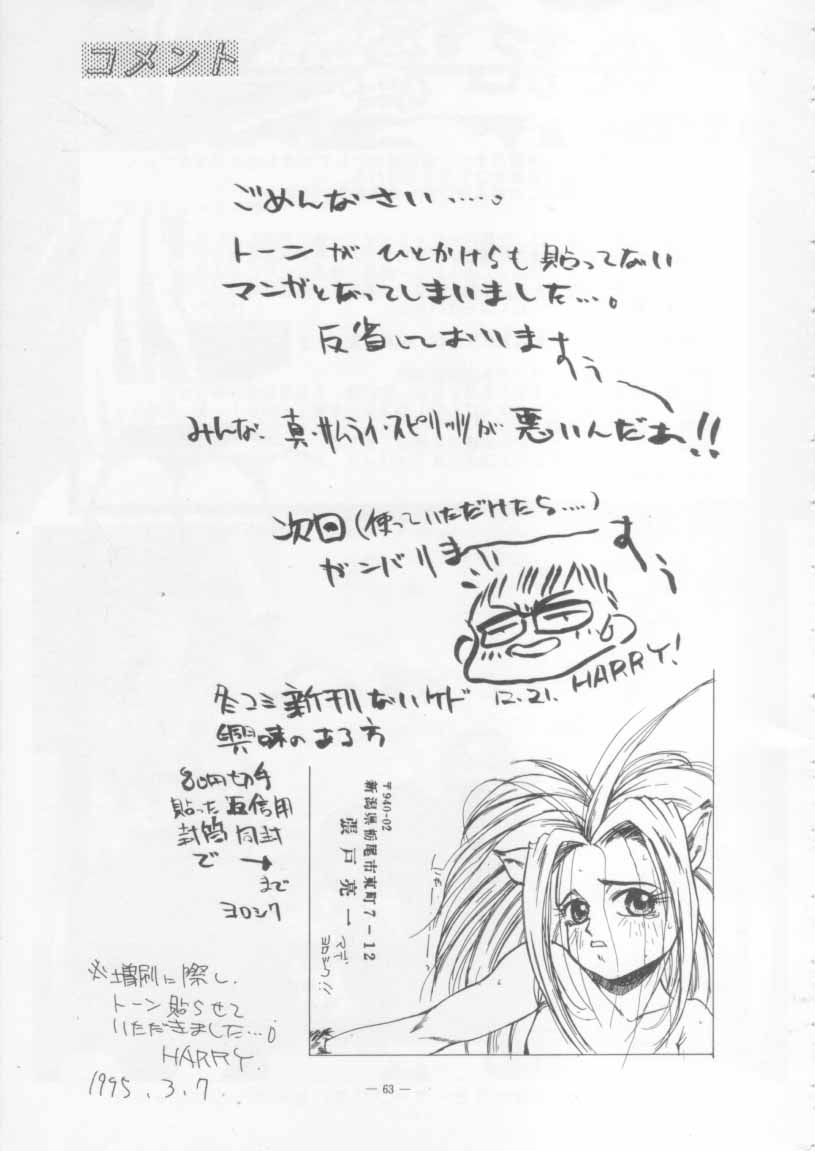 コメント
ごめんなさい……。
トーンがひとかけらも貼ってない
マンガとなってしまいました…。
反省しておりますうぅ
みんな、真・サムライ・スピリッツが悪いんだぁ!!
次回(使っていただけたら….)
ガンバりまーーすぅぅ
HARRY!
12.21.
冬コミ新刊ないケド
興味のある方
80円切手
貼った返信用
封筒同封
で→
まで
ヨロシク
〒940-02
新潟県栃尾市東町7-12
張戸亮一
マデ
ヨロシク!!
※増刷に際し、
トーン貼らせて
いただきました…。
HARRY.
1995.3.7.
— 63 —